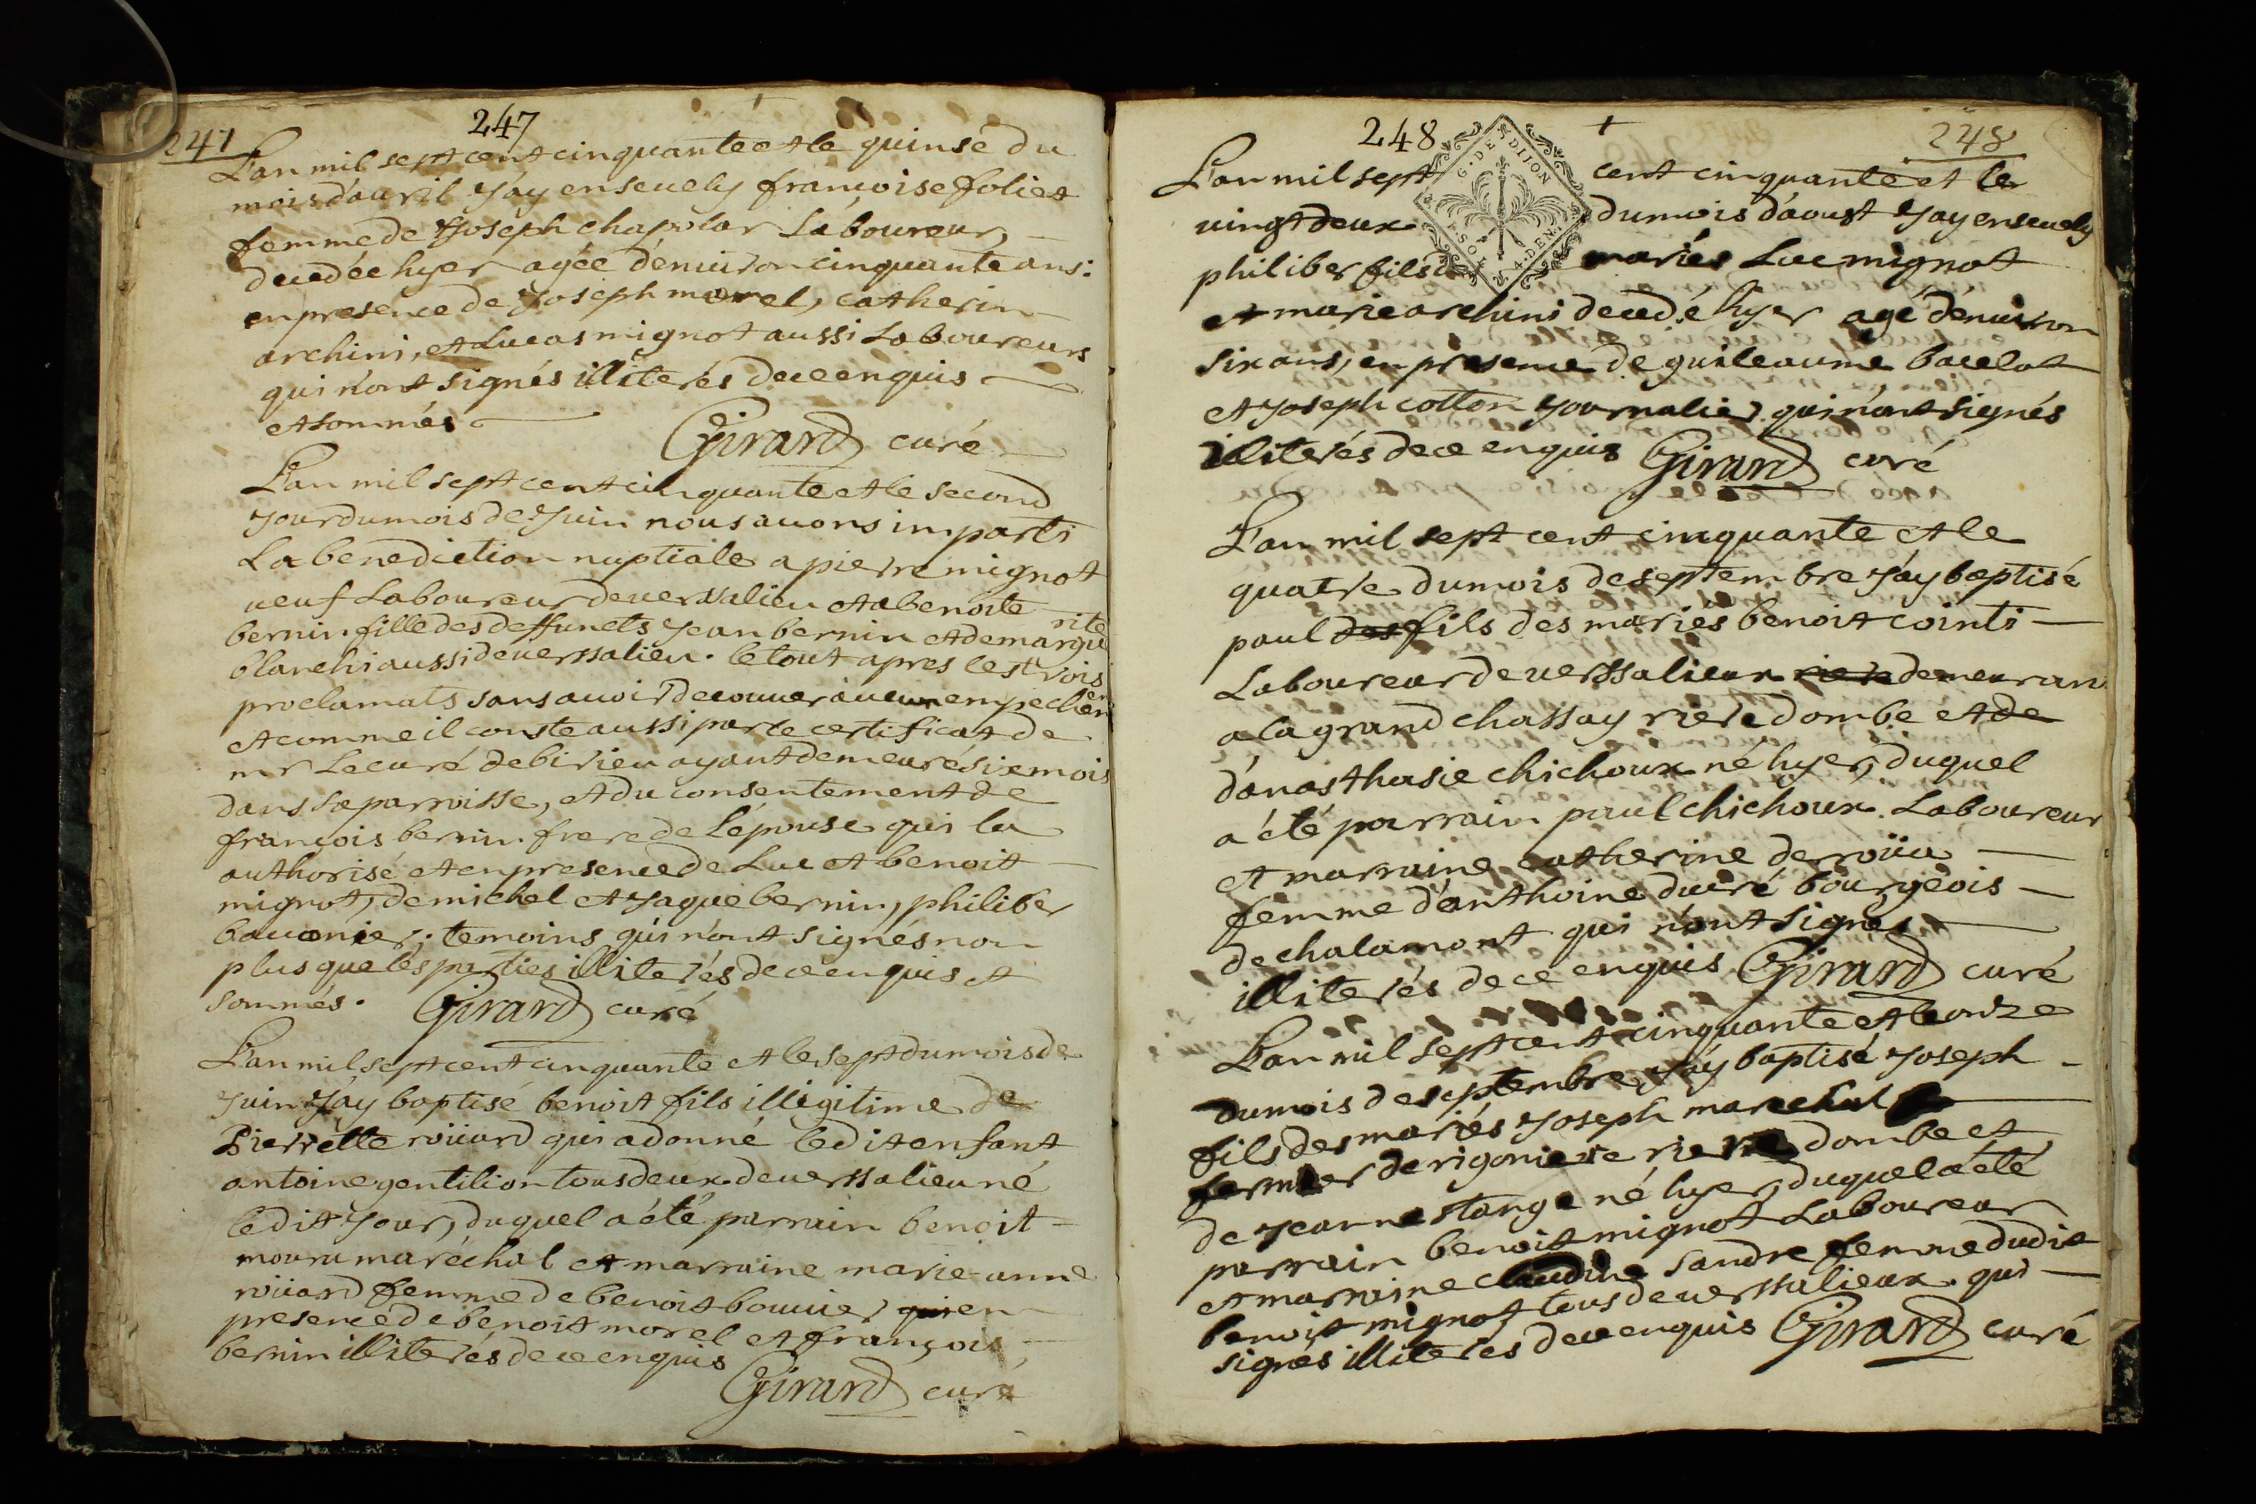 247
247
L'an mil sept cent cinquante et le quinse du
mois d'avril j'ay ensevely françoise foliet
femme de joseph chapolar laboureur,
decedée hyer agée d'environ cinquante ans:
en presence de joseph morel, catherin
archini, et lucas mignot aussi laboureurs
qui n'ont signés illiterés de ce enquis
et sommés
Girard curé
L'an mil sept cent cinquante et le second
jour du mois de juin nous avons imparti
la benediction nuptiale a pierre mignot
veuf laboureur de versalieu et a benoite
bernin fille des deffuncts jean bernin et de margue
rite
blanchi aussi de verssalieu. le tout apres les trois
proclamats sans avoir decouver aucun empechem
en
et comme il conste aussi par le certificat de
mr le curé de birieu ayant demeuré six mois
dans sa parroisse, et du consentement de
françois bernin frere de l'épouse qui la
authorisé et en presence de luc et benoit
mignot, de michel et jaque bernin, philiber
bavonier. temoins qui n'ont signés non
plus que les parties illiterés de ce enquis et
sommés. Girard curé
L'an mil sept cent cinquante et le sept du mois de
juin j'ay baptisé benoit fils illegitime de
Pierrette roüard qui a donné ledit enfant
antoine gentilion tous deux de verssalieu né
ledit jour, duquel a été parrain benoit
moura maréchal et marraine marie anne
roüard femme de benoit bouvier qui en
presence de benoit morel et françois
bernin illiterés de ce enquis
Girard curé
248
248
G. DE DIJON
SOL 4. DEN.
L'an mil sept cent cinquante et le
vingt deux du mois d'aoust j'ay ensevely
philiber fils des mariés luc mignot
et marie archini decedé hyer agé d'environ
six ans, en presence de guileaume bacelot
et joseph cotton journalier qui n'ont signés
illiterés de ce enquis Girard curé
L'an mil sept cent cinquante et le
quatre du mois de septembre j'ay baptisé
paul des fils des mariés benoit cointi
laboureur de verssalieux riere demeuran
a la grand chassay riere dombe et de
d'anasthasie chichoux né hyer, duquel
a été parrain paul chichoux laboureur
et marraine catherine derroüa
femme d'anthoine ducré bourgeois
de chalamont qui n'ont signes
illiterés de ce enquis Girard curé
L'an mil sept cent cinquante et le onze
du mois de septembre j'ay baptisé joseph
fils des mariés joseph marechal
fermier de rigoniere riere dombe et
de jeanne stange né hyer, duquel a été
parrain benoit mignot laboureur
et marraine claudine sandre femme dudit
benoit mignot tous de verssalieux. qui
signés illiteres de ce enquis Girard curé